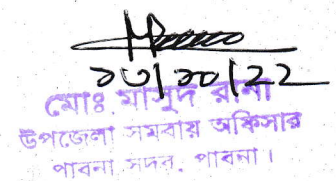 ২৩/১০/22
মোঃ মাসুদ রানা
উপজেলা সমবায় অফিসার
পাবনা সদর, পাবনা।